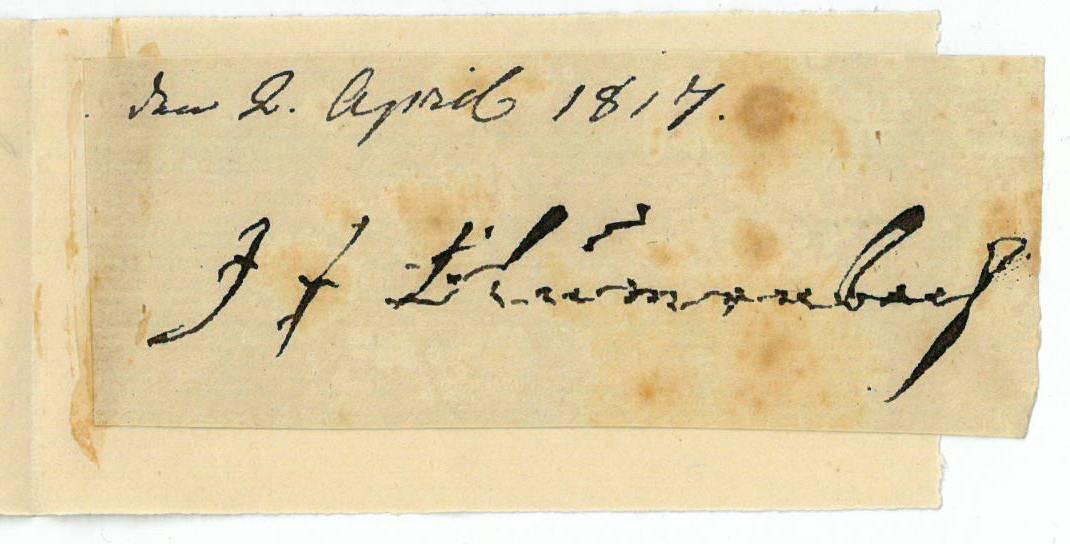 den 2. April 1817.
J f Blumenbach